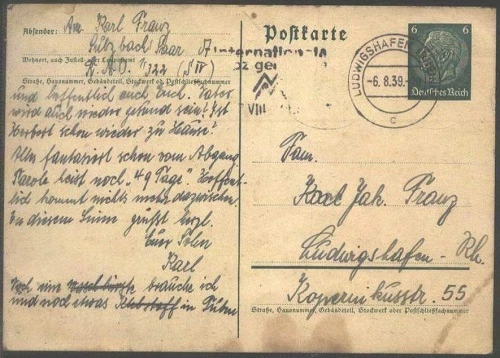 Postkarte
Absender: Am. Karl Franz
Sulzbach Saar
Wohnort, auch Zustell- oder Leitpostamt
R.A.D. 7/322 (S IV)
Straße, Hausnummer, Gebäudeteil, Stockwerk od. Postschließfachnummer
und hoffentlich auch Euch. Vater
wird auch wieder gesund sein? Ist
Herbert schon wieder zu Hause?
Alle fantasiert schon vom Abgang
Parole heist noch "49 Tage" Hoffent-
lich kommt nichts mehr dazwischen
In diesem Sinne grüßt Herzl.
Euer Sohn
Karl
Noch eine brauche ich
und noch etwas in Tuben
Internationale
VIII
LUDWIGSHAFEN (RHEIN)
-6.8.39.
c
6
6
Deutsches Reich
Fam.
Karl Jak. Franz
Ludwigshafen-Rh.
Kopernikusstr. 55
Straße, Hausnummer, Gebäudeteil, Stockwerk oder Postschließfachnummer